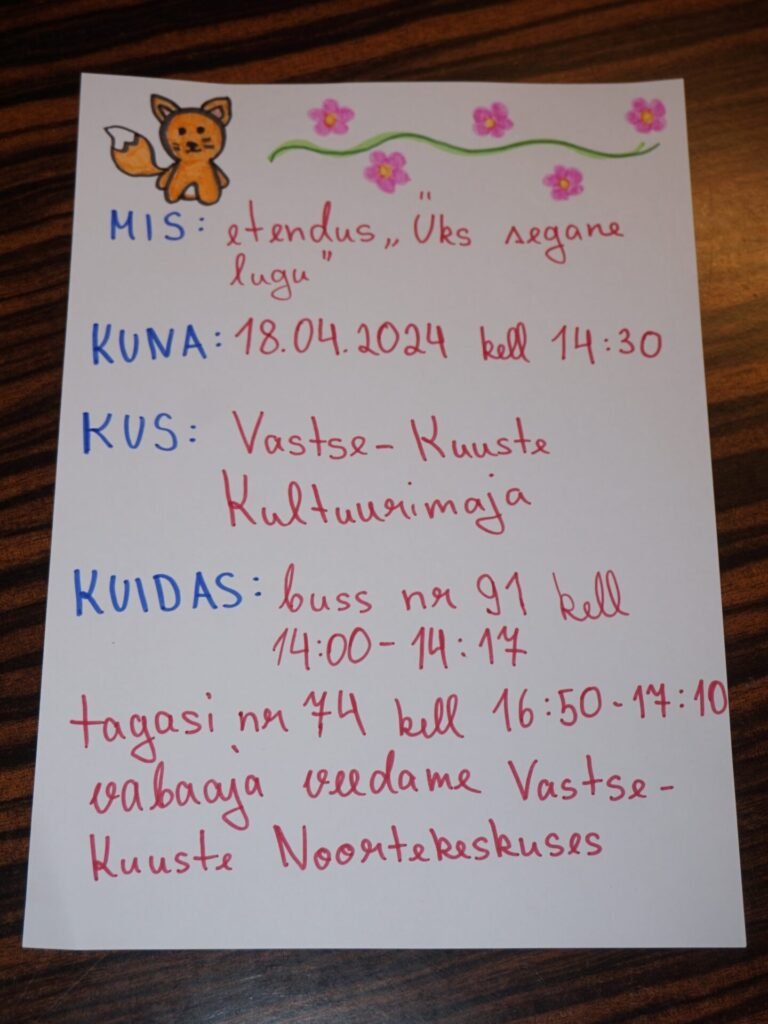 MIS: etendus „Üks segane
lugu"
KUNA: 18.04.2024 kell 14:30
KUS: Vastse-Kuuste
Kultuurimaja
KUIDAS: buss nr 91 kell
14:00-14:17
tagasi nr 74 kell 16:50-17:10
vabaaja veedame Vastse-
Kuuste Noortekeskuses